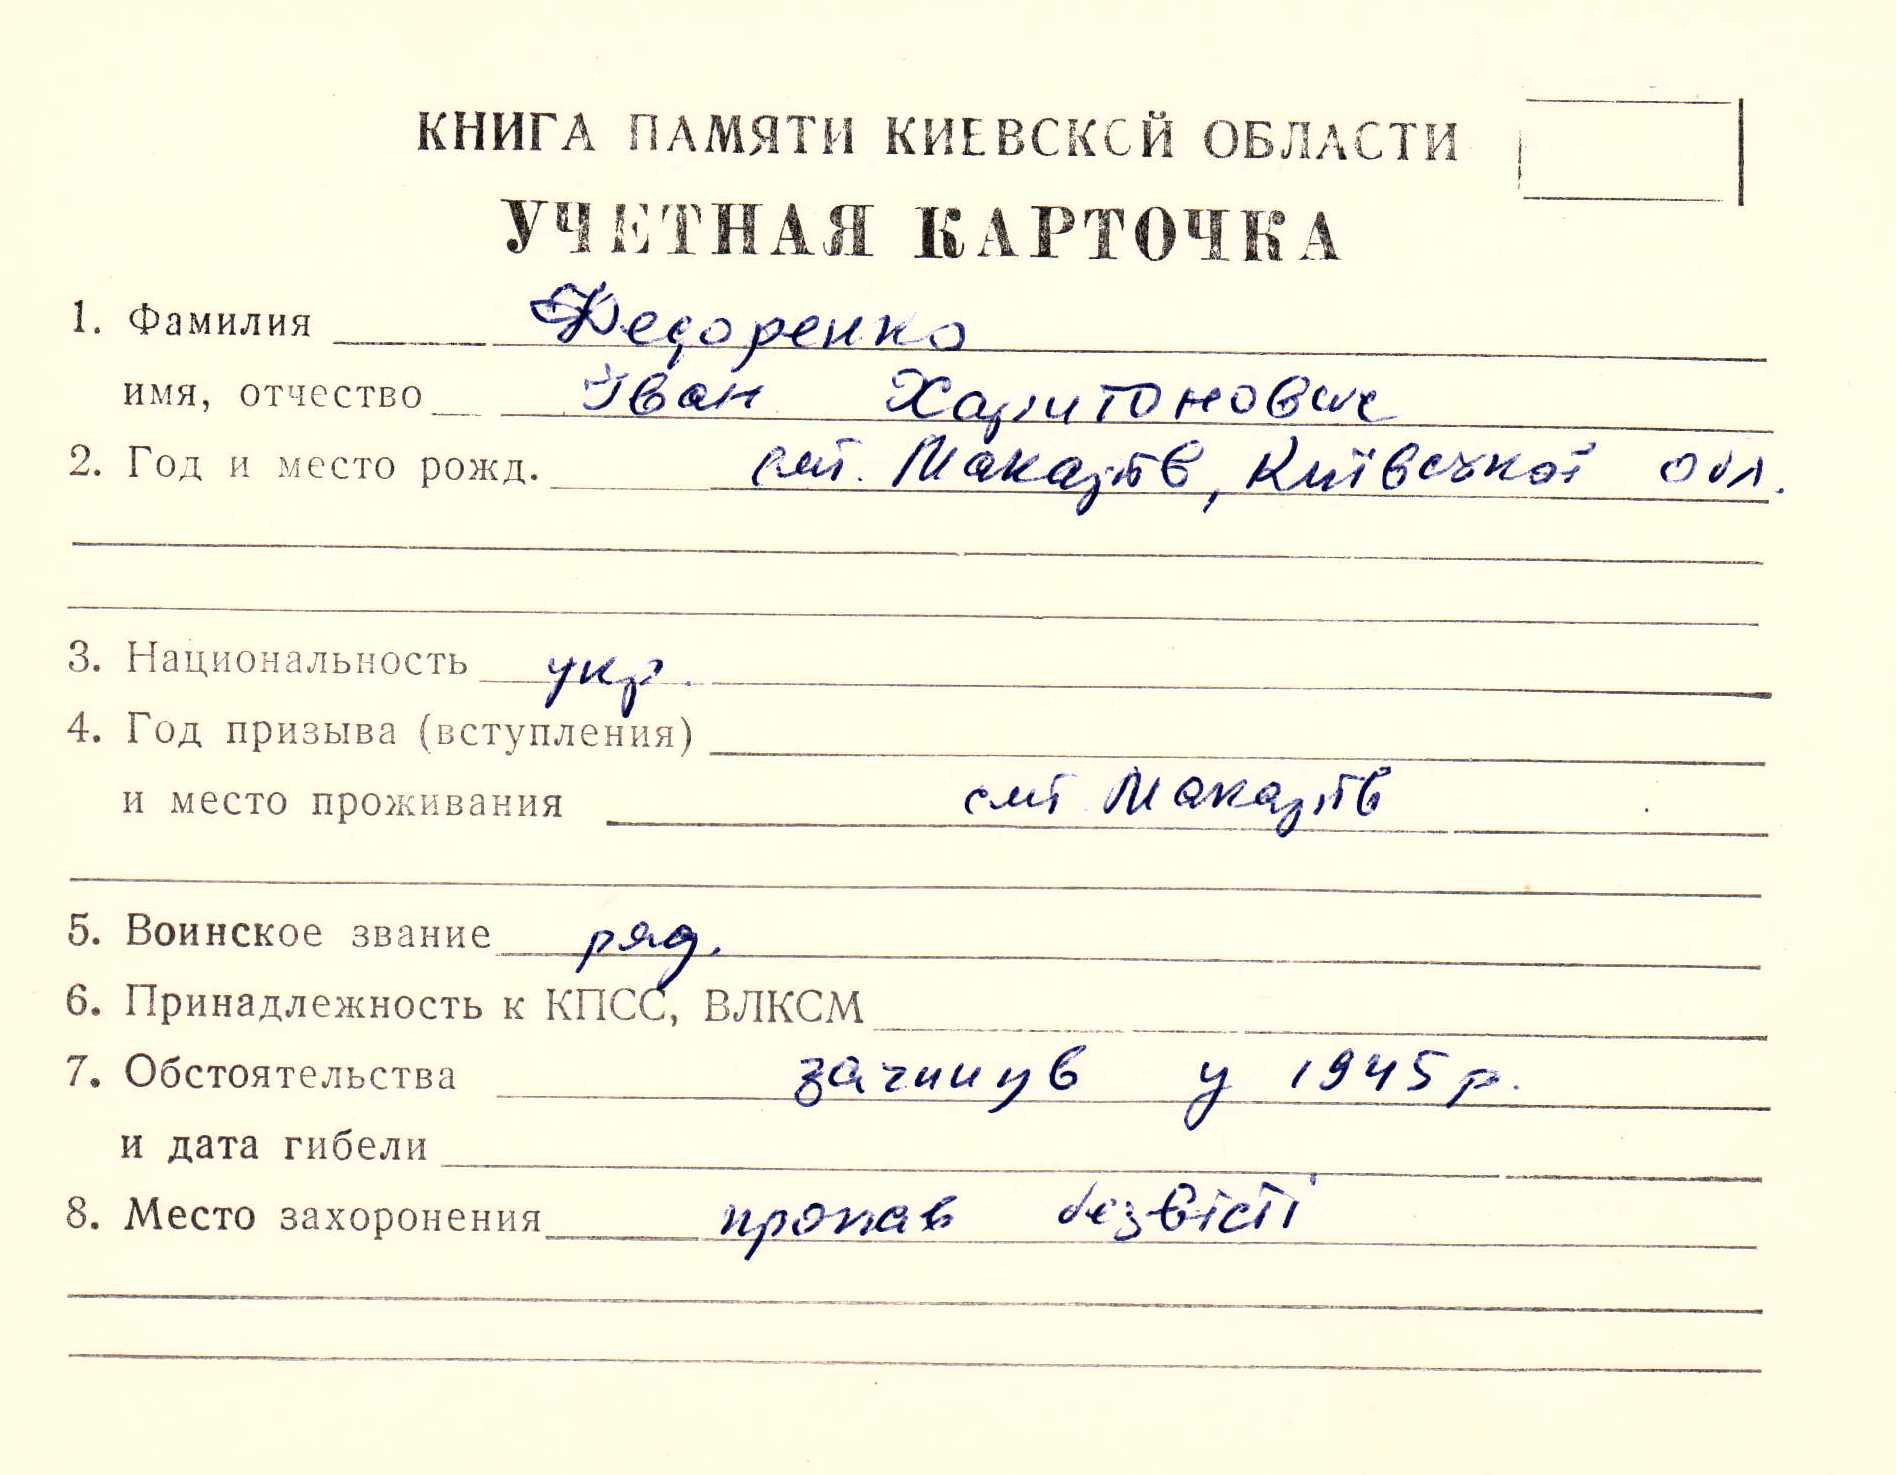 КНИГА ПАМЯТИ КИЕВСКОЙ ОБЛАСТИ
УЧЕТНАЯ КАРТОЧКА
1. Фамилия Федоренко
имя, отчество Іван Харитонович
2. Год и место рожд. смт. Макарів, Київської обл.
3. Национальность укр.
4. Год призыва (вступления)
и место проживания смт Макарів
5. Воинское звание ряд.
6. Принадлежность к КПСС, ВЛКСМ
7. Обстоятельства загинув у 1945 р.
и дата гибели
8. Место захоронения пропав безвісті